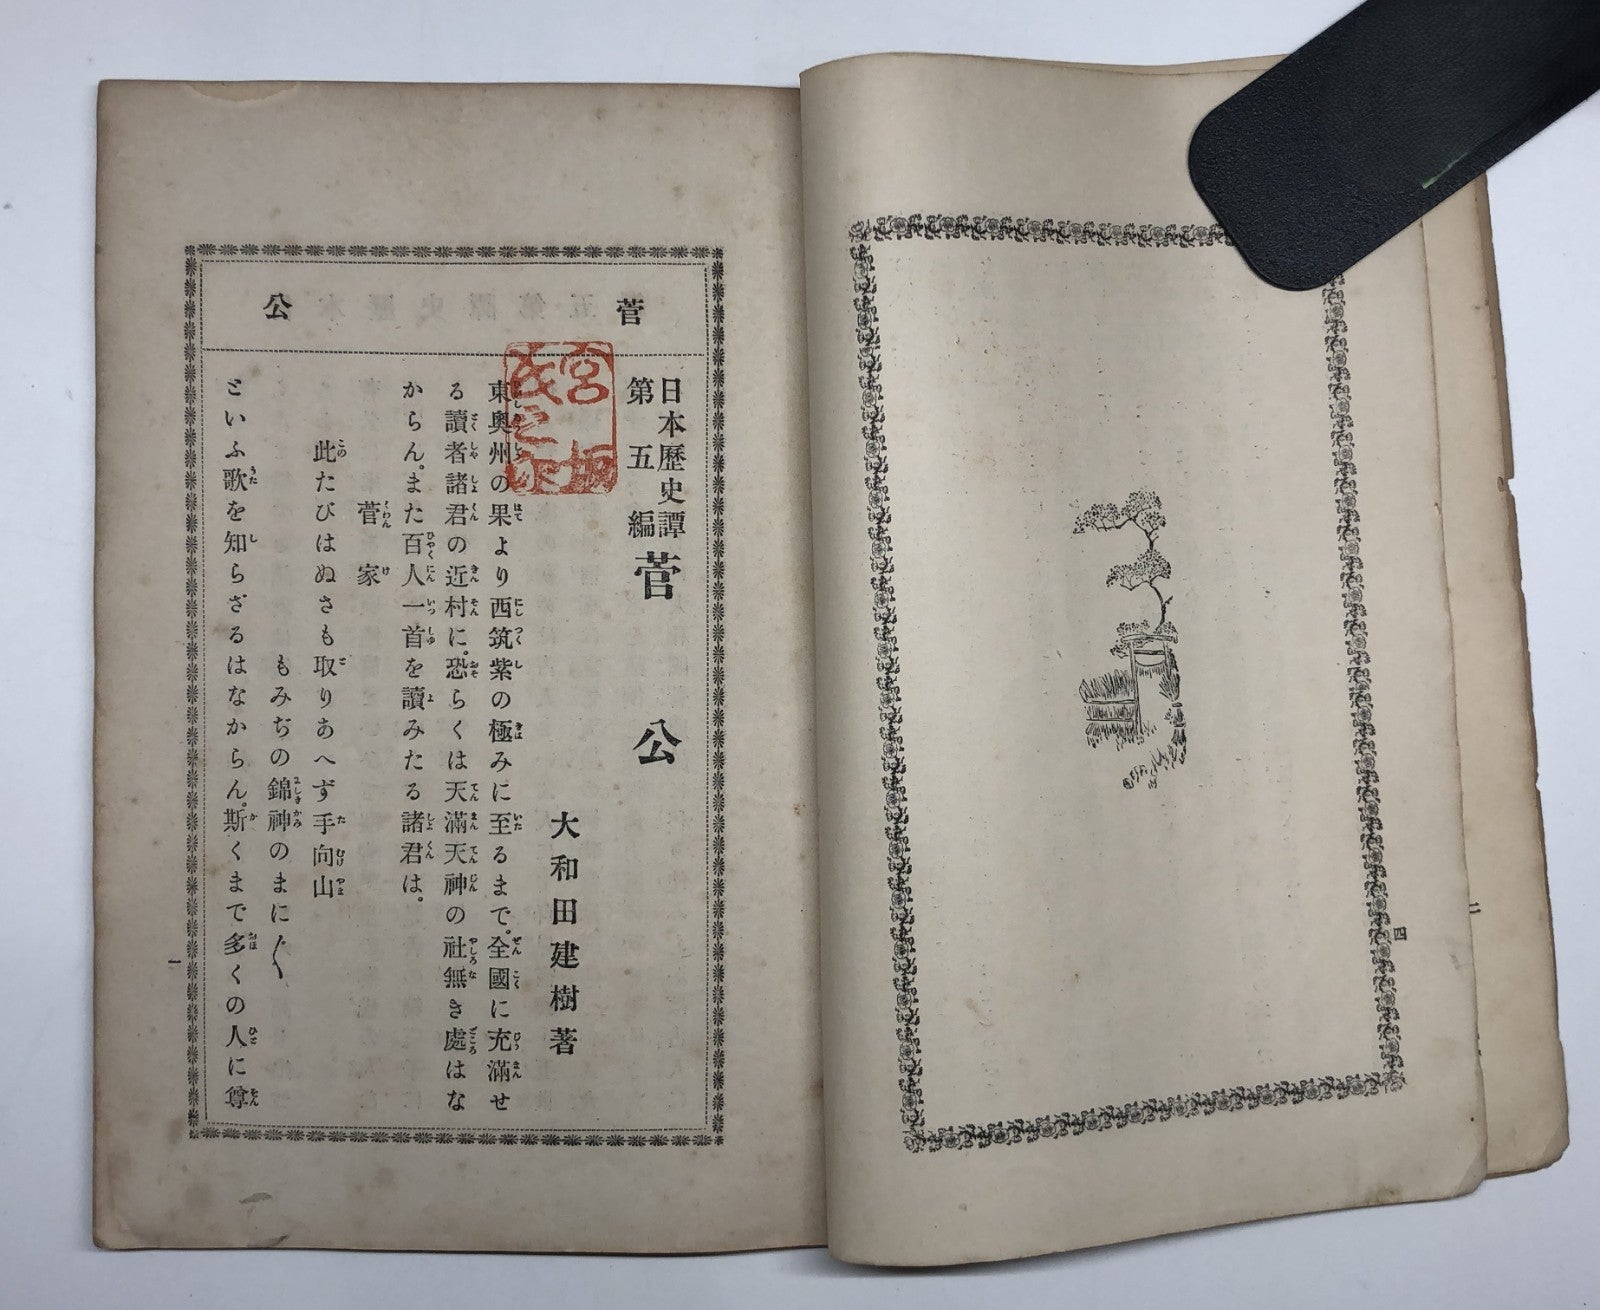 四
二
菅公
日本歷史譚
第五編
菅公
大和田建樹著
東奧州の果より西筑紫の極みに至るまで。全國に充滿せ
る讀者諸君の近村に。恐らくは天滿天神の社無き處はな
からん。また百人一首を讀みたる諸君は。
菅家
此たびはぬさも取りあへず手向山
もみぢの錦神のまに〱
といふ歌を知らざるはなからん。斯くまで多くの人に尊
一